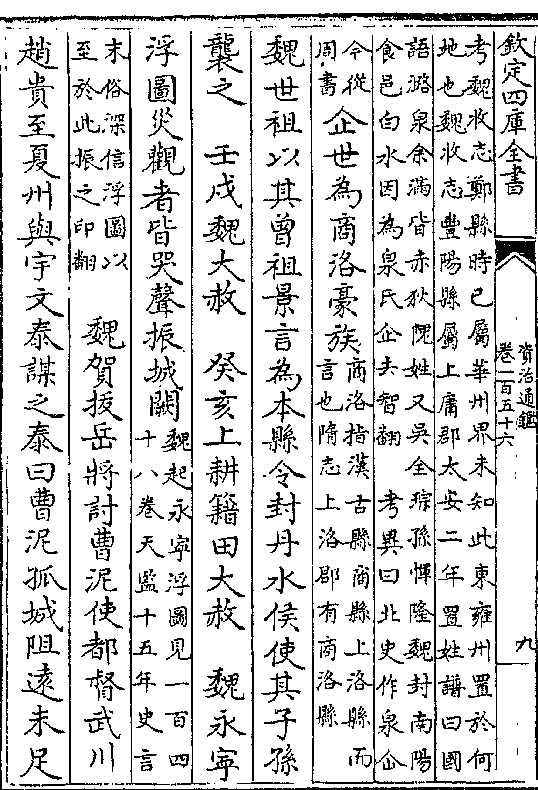 欽定四庫全書
資治通鑑
卷一百五十六
九
考魏收志鄭縣時已屬華州界未知此東雍州置於何
地也魏收志豐陽縣屬上庸郡太安二年置姓譜曰國
語潞泉余滿皆赤狄隗姓又吳全琮孫惲降魏封南陽
食邑白水因為泉氏企去智翻　考異曰北史作泉仚
今從
周書
企世為商洛豪族
商洛指漢古縣商縣上洛縣而
言也隋志上洛郡有商洛縣
魏世祖以其曾祖景言為本縣令封丹水侯使其子孫
襲之　壬戌魏大赦　癸亥上耕籍田大赦　魏永寧
浮圖災觀者皆哭聲振城闕
魏起永寧浮圖見一百四
十八卷天監十五年史言
末俗深信浮圖以
至於此振之印翻
魏賀拔岳將討曹泥使都督武川
趙貴至夏州與宇文泰謀之泰曰曹泥孤城阻遠未足